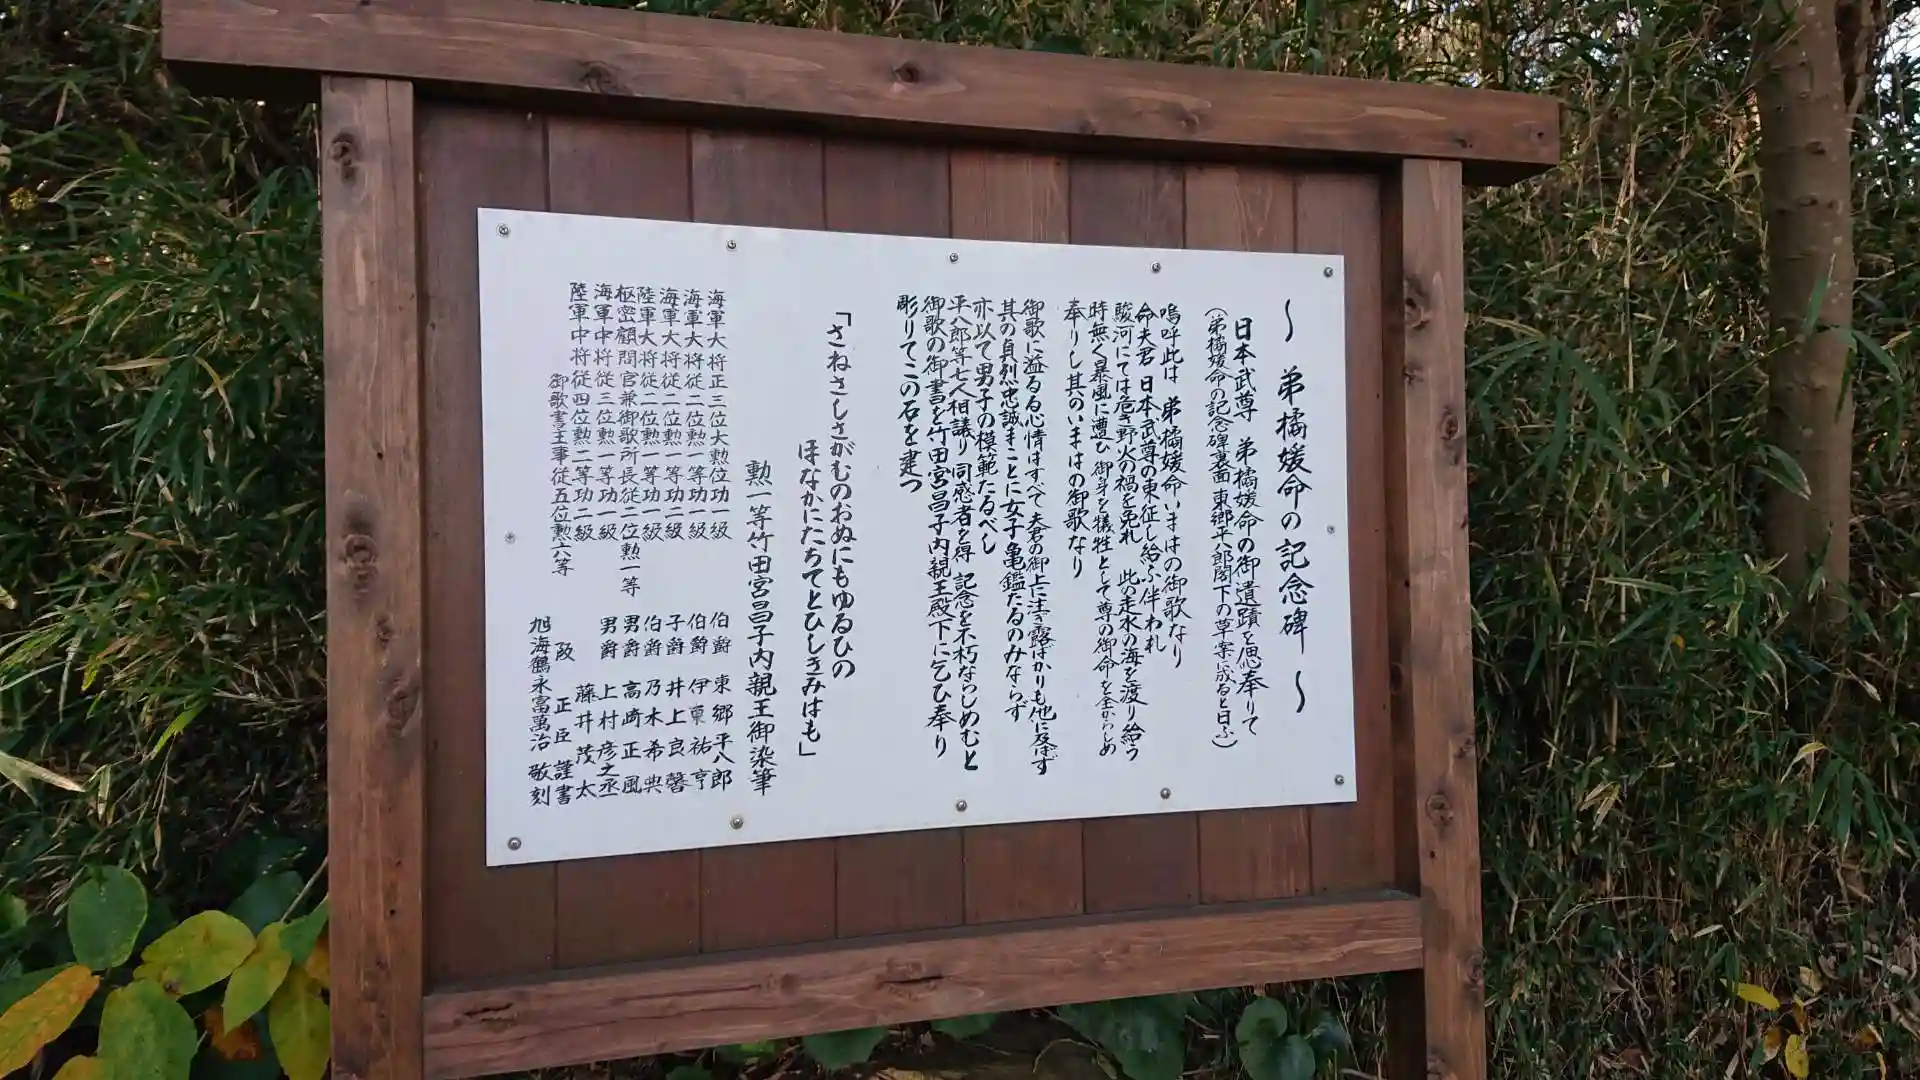 ～ 弟橘媛命の記念碑 ～
日本武尊 弟橘媛命の御遺蹟を偲奉りて
(弟橘媛命の記念碑裏面 東郷平八郎閣下の草案に成ると日ふ)
嗚呼此は 弟橘媛命いまはの御歌なり
命夫君 日本武尊の東征し給ふ伴われ
駿河にては危き野火の禍を免れ 此の走水の海を渡り給う
時無く暴風に遭ひ 御身を犠牲として尊の御命を全からしめ
奉りし其のいまはの御歌なり
御歌に溢るる心情はすべて夫君の御上に注ぎ露ばかりも他に及ばず
其の貞烈忠誠まことに女子亀鑑たるのみならず
亦以て男子の模範たるべし
平八郎等七人相議り 同感者を得 記念を不朽ならしめむと
御歌の御書を竹田宮昌子内親王殿下に乞ひ奉り
彫りてこの石を建つ
「さねさしさがむのおぬにもゆるひの
ほなかにたちてとひしきみはも」
勲一等竹田宮昌子内親王御染筆
海軍大将正三位大勲位功一級 伯爵 東郷平八郎
海軍大将従二位勲一等功一級 伯爵 伊東祐亨
海軍大将従二位勲一等功二級 子爵 井上良馨
陸軍大将従二位勲一等功一級 伯爵 乃木希典
枢密顧問官兼御歌所長従二位勲一等 男爵 高崎正風
海軍中将従三位勲一等功一級 男爵 上村彦之丞
陸軍中将従四位勲二等功二級 藤井茂太
御歌書主事従五位勲六等 阪正臣 謹書
旭海鶴永富萬治 敬刻